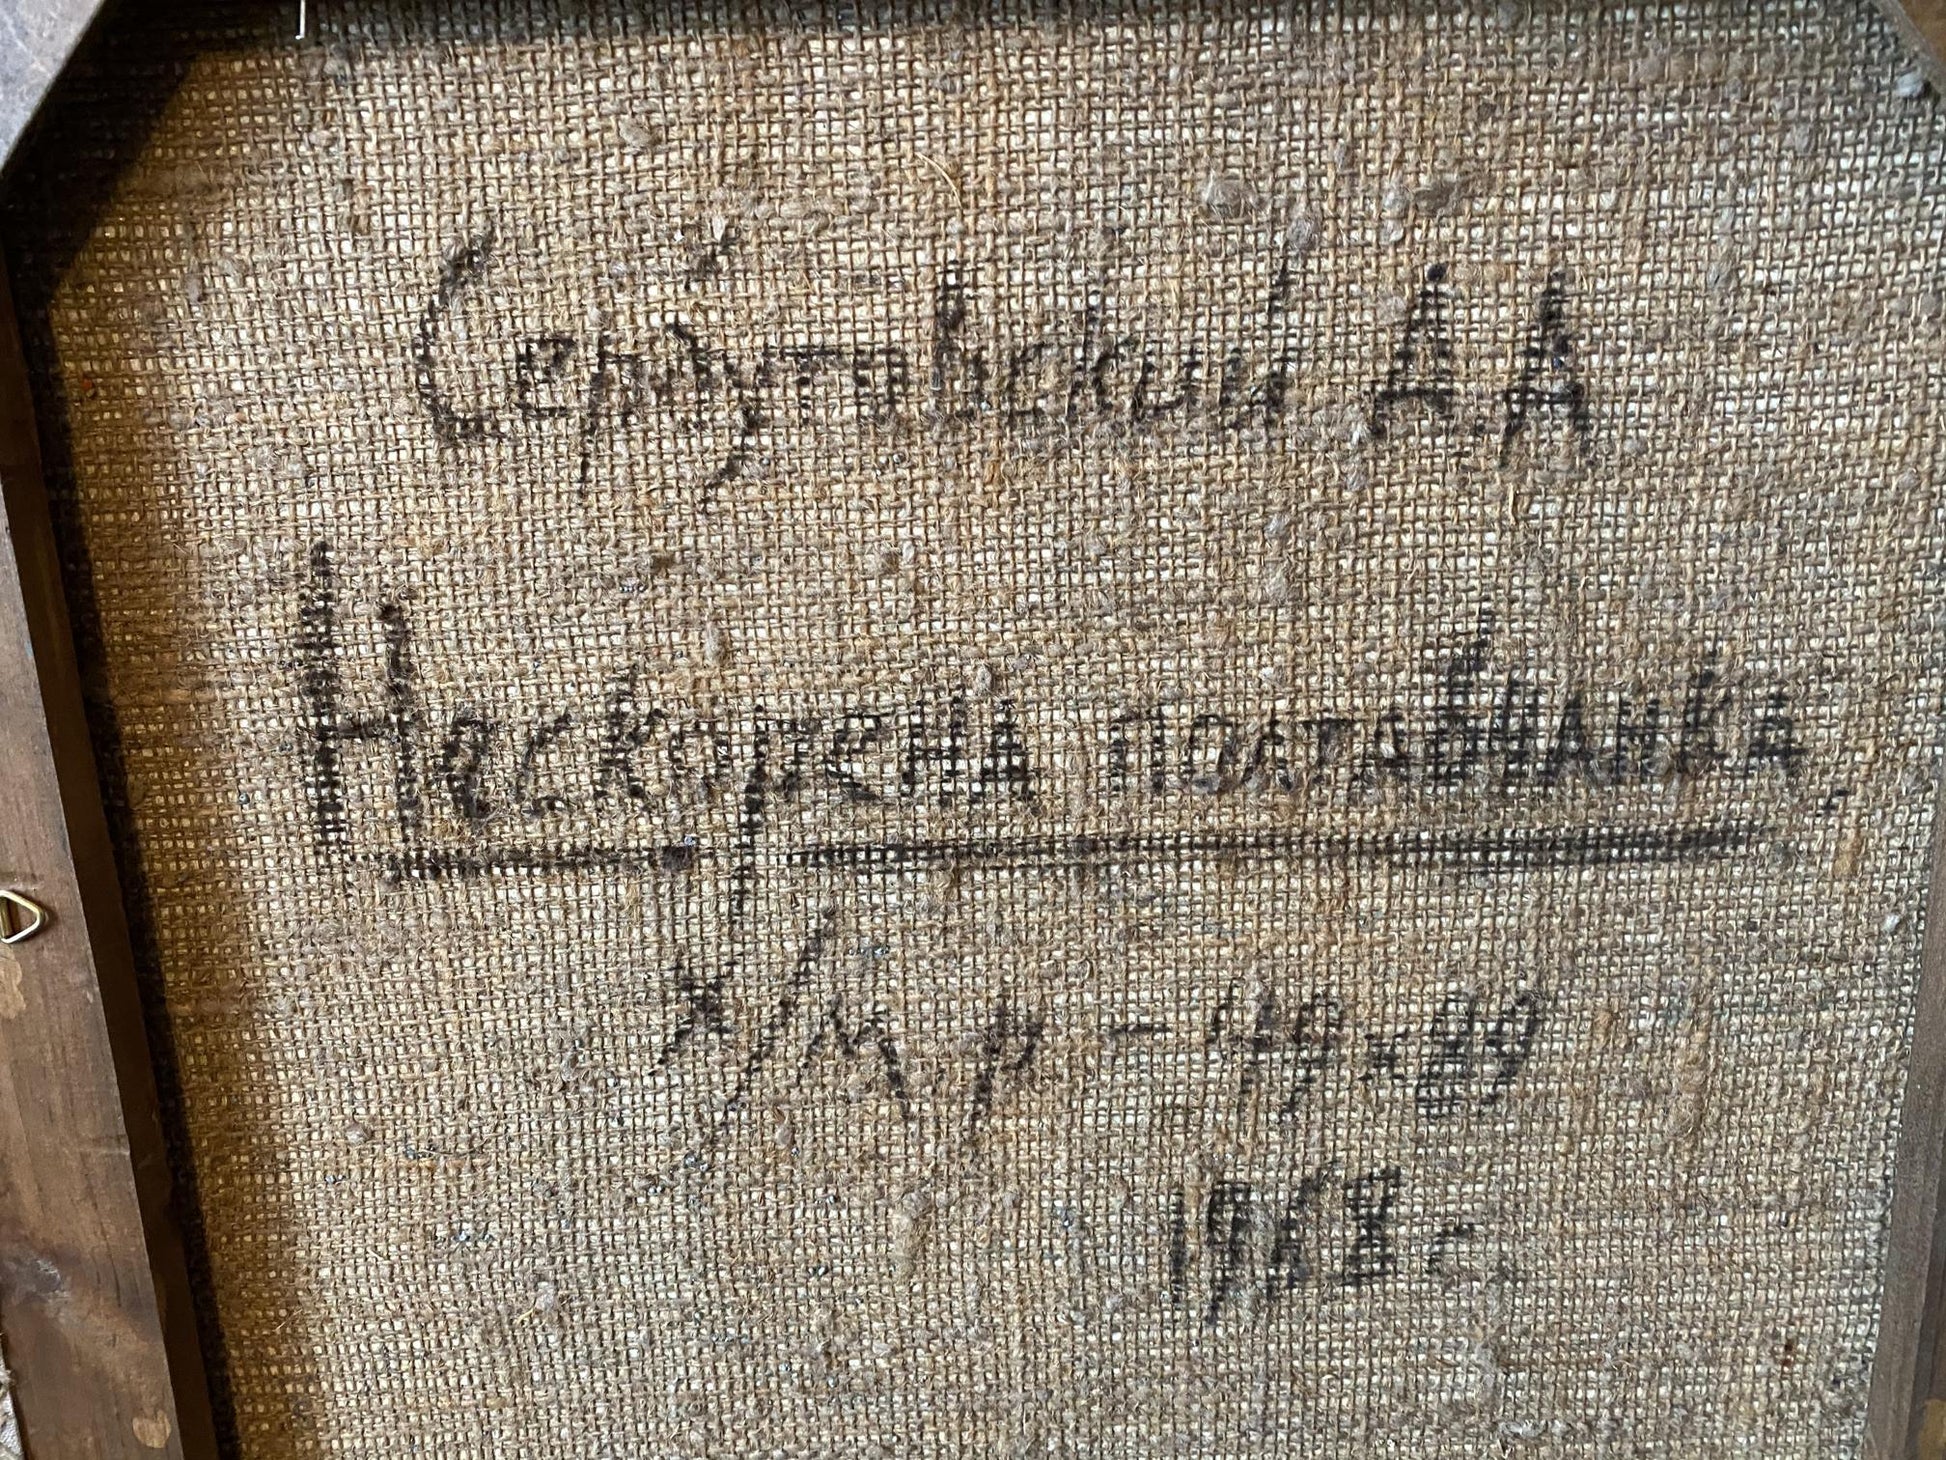 Сербутовский А.А
Нескорена полтавчанка
х/м р - 49 х 89
1963 г